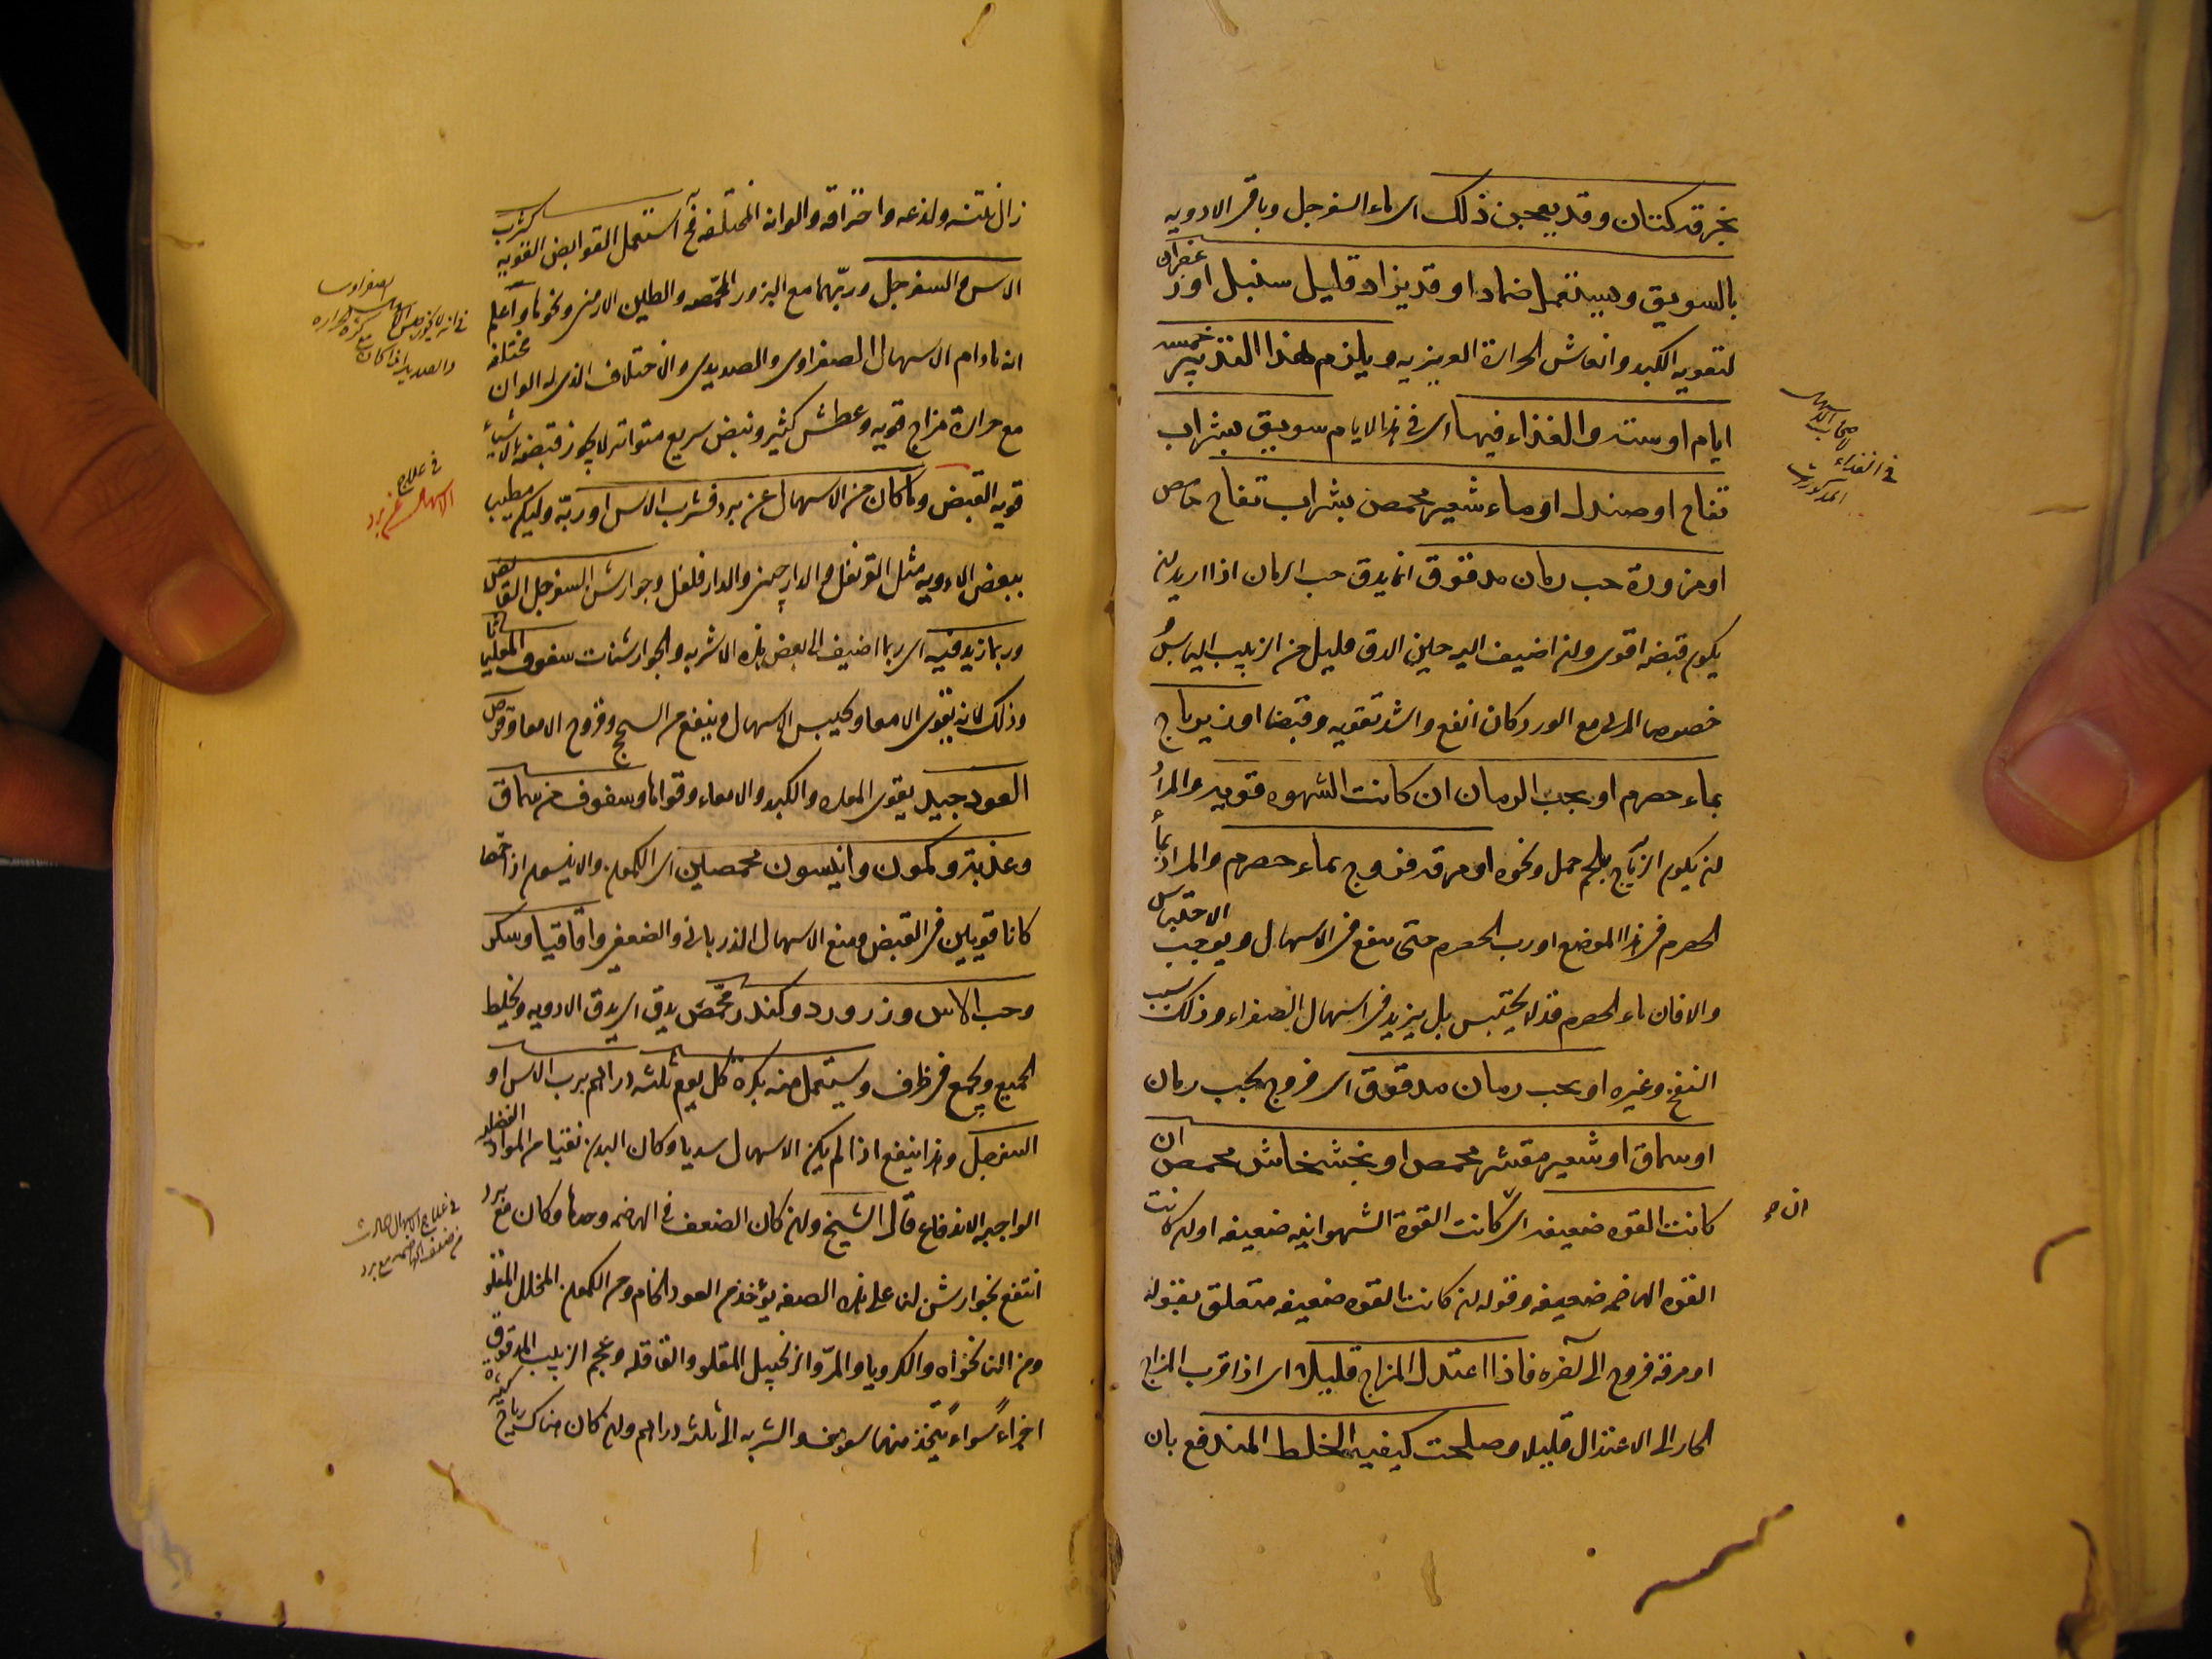 بخرقه كتان وقد يعجن ذلك اى بماء السفرجل وباقى الادويه
بالسويق ويستعمل ضمادا وقد يزاد قليل سنبل او زعفران
لتقويه الكبد وانعاش الحرارة الغريزيه ويلزم هذا التدبير خمسه
ايام او ستة والغذاء فيها اى فى هذه الايام سويق بشراب
تفاح او صندل او ماء شعير محمص بشراب تفاح حامض
او مزورة حب رمان مدقوق انما يدق حب الرمان اذا اريد ان
يكون قبضه اقوى وان اضيف اليه حين الدق قليل من الزبيب اليابس
خصوصا المربى مع الورد كان انفع واشد تقويه وقبضا او زيرباج
بماء حصرم او بحب الرمان ان كانت الشهوه قويه والمراد
ان يكون الزيرباج بلحم حمل ونحوه او مرقه فروج بماء حصرم والمراد بماء
الحصرم فى هذا الموضع او رب الحصرم حتى ينفع فى الاسهال ويوجب الاحتباس
والا فان ماء الحصرم قد لا يحتبس بل يزيد فى اسهال الصفراء وذلك بسبب
النفخ وغيره او بحب رمان مدقوق اى فروج بحب رمان
او سماق او شعير مقشر محمص او بخشخاش محمص ان
كانت القوه ضعيفه اى كانت القوة الشهوانيه ضعيفه او ان كانت
القوه الهاضمه ضعيفه وقوله ان كانت القوه ضعيفه متعلق بقوله
او مرقه فروج الى آخره فاذا اعتدل المزاج قليلا اى اذا قرب المزاج
الحار الى الاعتدال قليلا وصلحت كيفيه الخلط المندفع بان
فى الغذاء لاصحاب الاسهال
زال نتنه ولذعه واحتراقه والوانه المختلفه فح استعمل القوابض القويه كشراب
الاس والسفرجل وربهما مع البزور المحمصه والطين الارمنى ونحوها واعلم
انه مادام الاسهال الصفراوى والصديدى والاختلاف الذى له الوان مختلفه
مع حرارة مزاج قويه وعطش كثير ونبض سريع متواتر لا يجوز قبضه بالاشياء
قويه القبض وما كان من الاسهال عن برد فشراب الاس او ربه وليكن مطيب
ببعض الادويه مثل القرنفل والدارچينى والدارفلفل وجوارش السفرجل القابض
وربما زيد فيه اى ربما اضيف الى بعض هذه الاشربه والجوارشنات سفوف المقلياثا
وذلك لانه يقوى الامعا ويحبس الاسهال وينفع من السحج وقروح الامعا وقرص
العود جيد يقوى المعده والكبد والامعاء وقواها وسفوف من سماق
وعذبة وكمون وانيسون محمصين اى الكمون والانيسون اذا حمصا
كانا قويين فى القبض ومنع الاسهال الذوبانى والضعفى واقاقيا وسكر
وحب الاس وزرورد وكندر محمص يدق اى يدق الادويه ويخلط
الجميع ويجمع فى ظرف ويستعمل منه بكرة كل يوم ثلثه دراهم برب الاس او
السفرجل وهذا ينفع اذا لم يكن الاسهال سدديا وكان البدن نقيا من المواد الفضليه
الواجبه الاندفاع قال الشيخ وان كان الضعف فى الهاضمه وحدها وكان مع برد
انتفع بجوارشن لنا على هذه الصفه يؤخذ من العود الخام ومن الكمون المخلل المقلو
ومن النانخواه والكرويا والمر والزنجبيل المقلو والقاقله وعجم الزبيب المدقوق
اجزاء سواء يتخذ منها سفوف والشربه الى ثلثه دراهم وان كان هناك رياح كثيره
فى علاج الاسهال عن برد